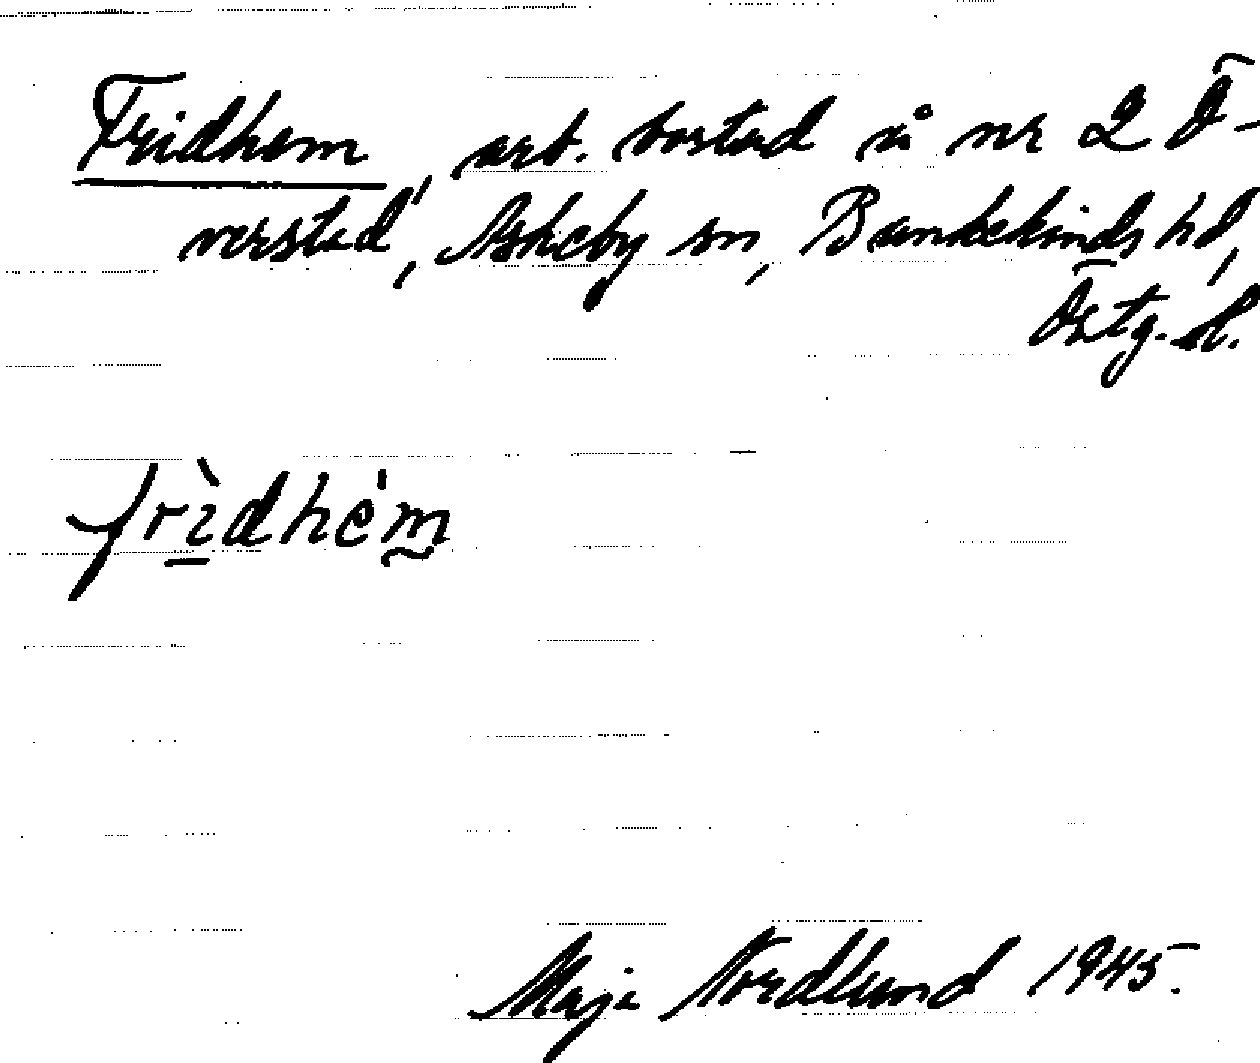 Fridhem, arb. bostad å nr 2 Ö-
verstad, Askeby sn, Bankekinds hd,
Östg. l.
frìdhém
Maja Nordlund 1945.